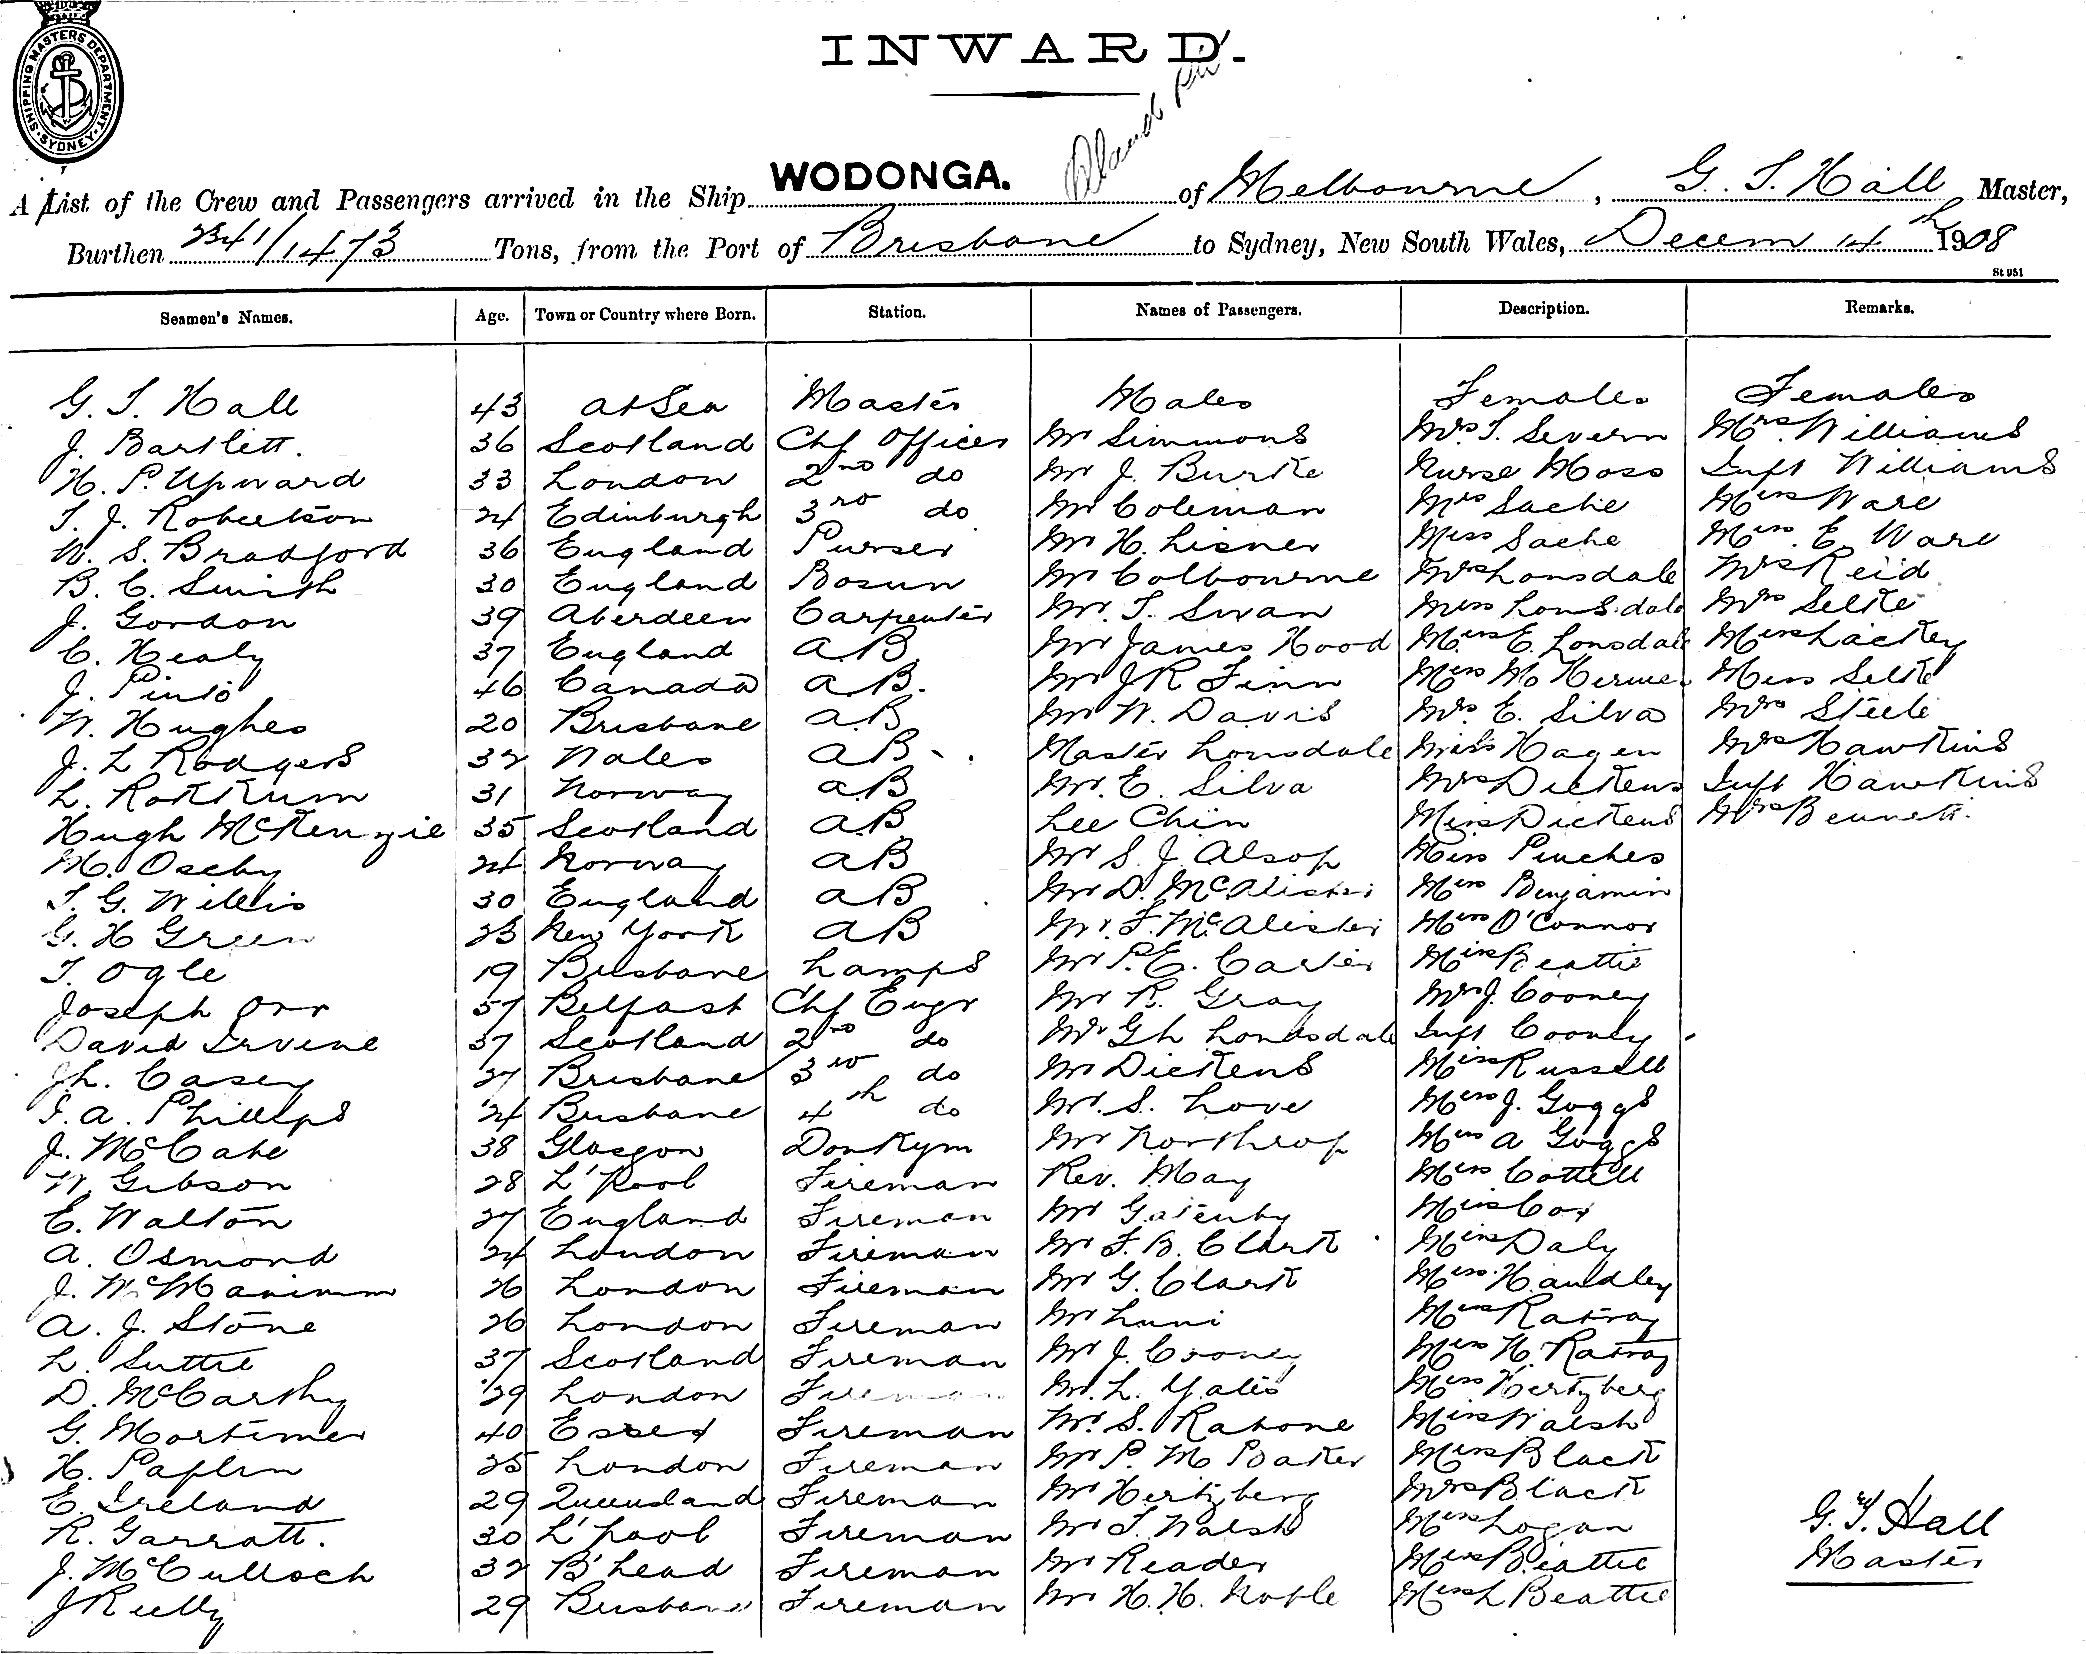 SHIPPING MASTERS DEPARTMENT. SYDNEY.
INWARD.
A List of the Crew and Passengers arrived in the Ship WODONGA. of Melbourne, G. T. Hall Master,
Burthen 2341/1473 Tons, from the Port of Brisbane to Sydney, New South Wales, Decem 14 th 1908
St 951
Seamen's Names. Age. Town or Country where Born. Station. Names of Passengers. Description. Remarks.
G. T. Hall 43 at Sea Master Males Females Females
J. Bartlett. 36 Scotland Chf Officer Mr Simmons Mrs T. Severn Mrs. Williams
H. P. Upward 33 London 2nd do Mr J. Burke Nurse Moss Inft Williams
T. J. Robertson 24 Edinburgh 3rd do Mr Coleman Mrs Sache Miss Ware
W. S. Bradford 36 England Purser Mr H. Lisner Miss Sache Miss. E. Ware
B. C. Smith 30 England Bosun Mr Colbourne Mrs Lonsdale Mrs Reid
J. Gordon 39 Aberdeen Carpenter Mr. T. Swan Miss Lonsdale Mrs Selke
C. Healy 37 England A.B. Mr James Hood Miss E. Lonsdale Miss Lackey
J. Pinto 46 Canada A.B. Mr J R Finn Miss M. Miss Selke
W. Hughes 20 Brisbane A.B. Mr W. Davis Mrs E. Silva Mrs Steele
J. L Rodgers 32 Wales AB Master Lonsdale Miss Hagen Mrs Hawkins
L. Rokkum 31 Norway A.B Mr. E. Silva Mrs Dickens Inft Hawkins
Hugh McKenzie 35 Scotland A.B. Lee Chin Miss Dickens Mrs Bennett.
M. Oseby 24 Norway AB Mr S. J. Alsop Miss Pinches
T. G. Willis 30 England AB Mr D. McAlister Miss Benjamin
G. H Green 23 New York AB Mr. F. McAlister Miss O'Connor
T. Ogle 19 Brisbane Lamps Mr P. E. Carter Miss Beattie
Joseph Orr 57 Belfast Chf Engr Mr R. Gray Mrs J. Cooney
David Irvine 37 Scotland 2nd do Mr Gh Lonsdale Inft Cooney
Jh. Casey 27 Brisbane 3rd do Mr Dickens Miss Russell
T. A. Phillips 24 Brisbane 4th do Mr. S. Love Miss J. Goggs
J. McCabe 38 Glasgow Donkym Mr Northrop Miss A Goggs
W. Gibson 28 L'Pool Fireman Rev. May Miss Cottell
E. Walton 27 England Fireman Mr Gatenby Miss Cox
A. Osmond 24 London Fireman Mr F. B. Clark Miss Daly
J. 26 London Fireman Mr G. Clark Miss. Handley
A. J. Stone 26 London Fireman Mr Luni Miss Ratray
L. Suttie 37 Scotland Fireman Mr J. Cooney Miss H. Ratray
D. McCarthy 29 London Fireman Mr. L. Yates Miss Hertzberg
G. Mortimer 40 Essex Fireman Mr. S. Rabone Miss Walsh
H. Paplin 25 London Fireman Mr P. M Baker Miss Black
E. Ireland 29 Queensland Fireman Mr Hertzberg Mrs Black
R. Garratt. 30 L'pool Fireman Mr T. Walsh Miss Logan
J. McCulloch 32 B'head Fireman Mr Reader Miss Beattie
J Reilly 29 Brisbane Fireman Mr H. H. Noble Miss L Beattie
G. T. Hall
Master